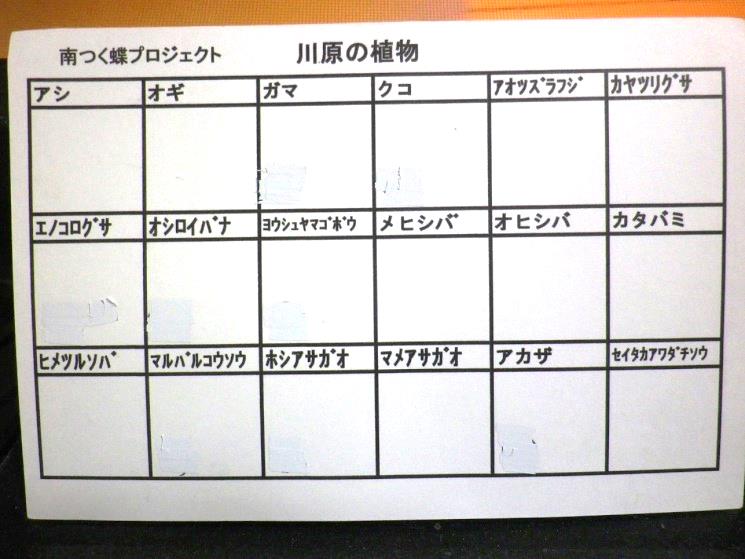 南つく蝶プロジェクト 川原の植物
アシ オギ ガマ クコ アオツズラフジ カヤツリグサ
エノコログサ オシロイバナ ヨウシュヤマゴボウ メヒシバ オヒシバ カタバミ
ヒメツルソバ マルバルコウソウ ホシアサガオ マメアサガオ アカザ セイタカアワダチソウ